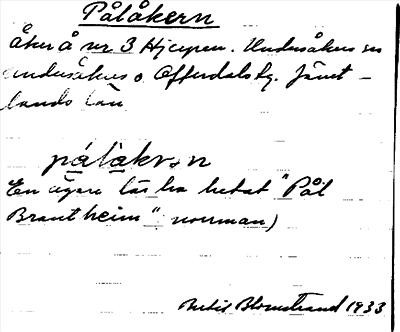 Pålåkern
Åker å nr 3 Hjerpen. Undersåkers sn
Undersåkers o. Offerdals tg. Jämt-
lands län
pålåkrn
En ägare lär ha hetat "Pål
Brantheim" norrman)
Bertil Blomstrand 1933